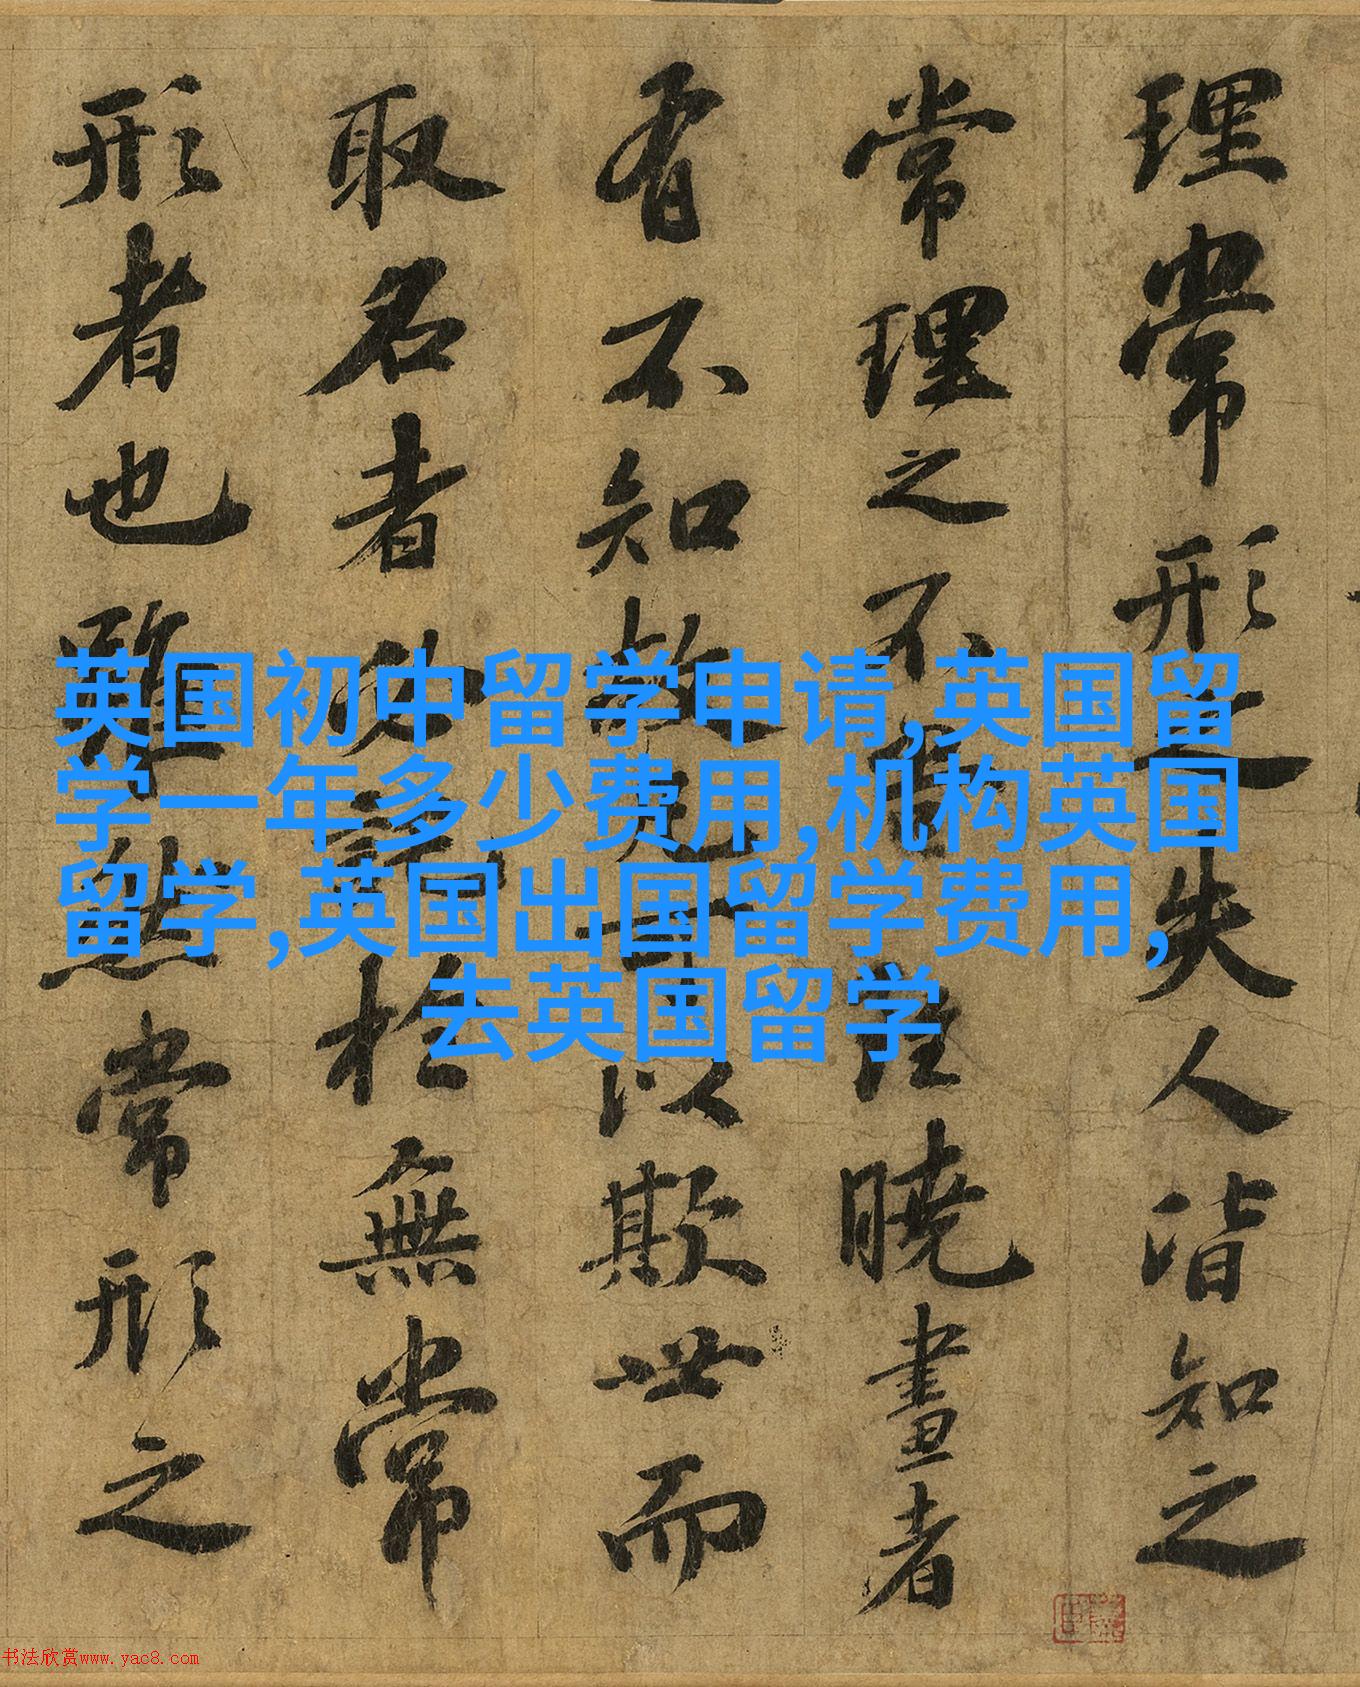 理常形之失人皆知之
常理之不當雖曉畫者
有不知故凡可以欺世而
取名者必託於無常
形者也雖然常形之
英国初中留学申请,英国留
学一年多少费用,机构英国
留学,英国出国留学费用,
去英国留学
书法欣赏www.yac8.com